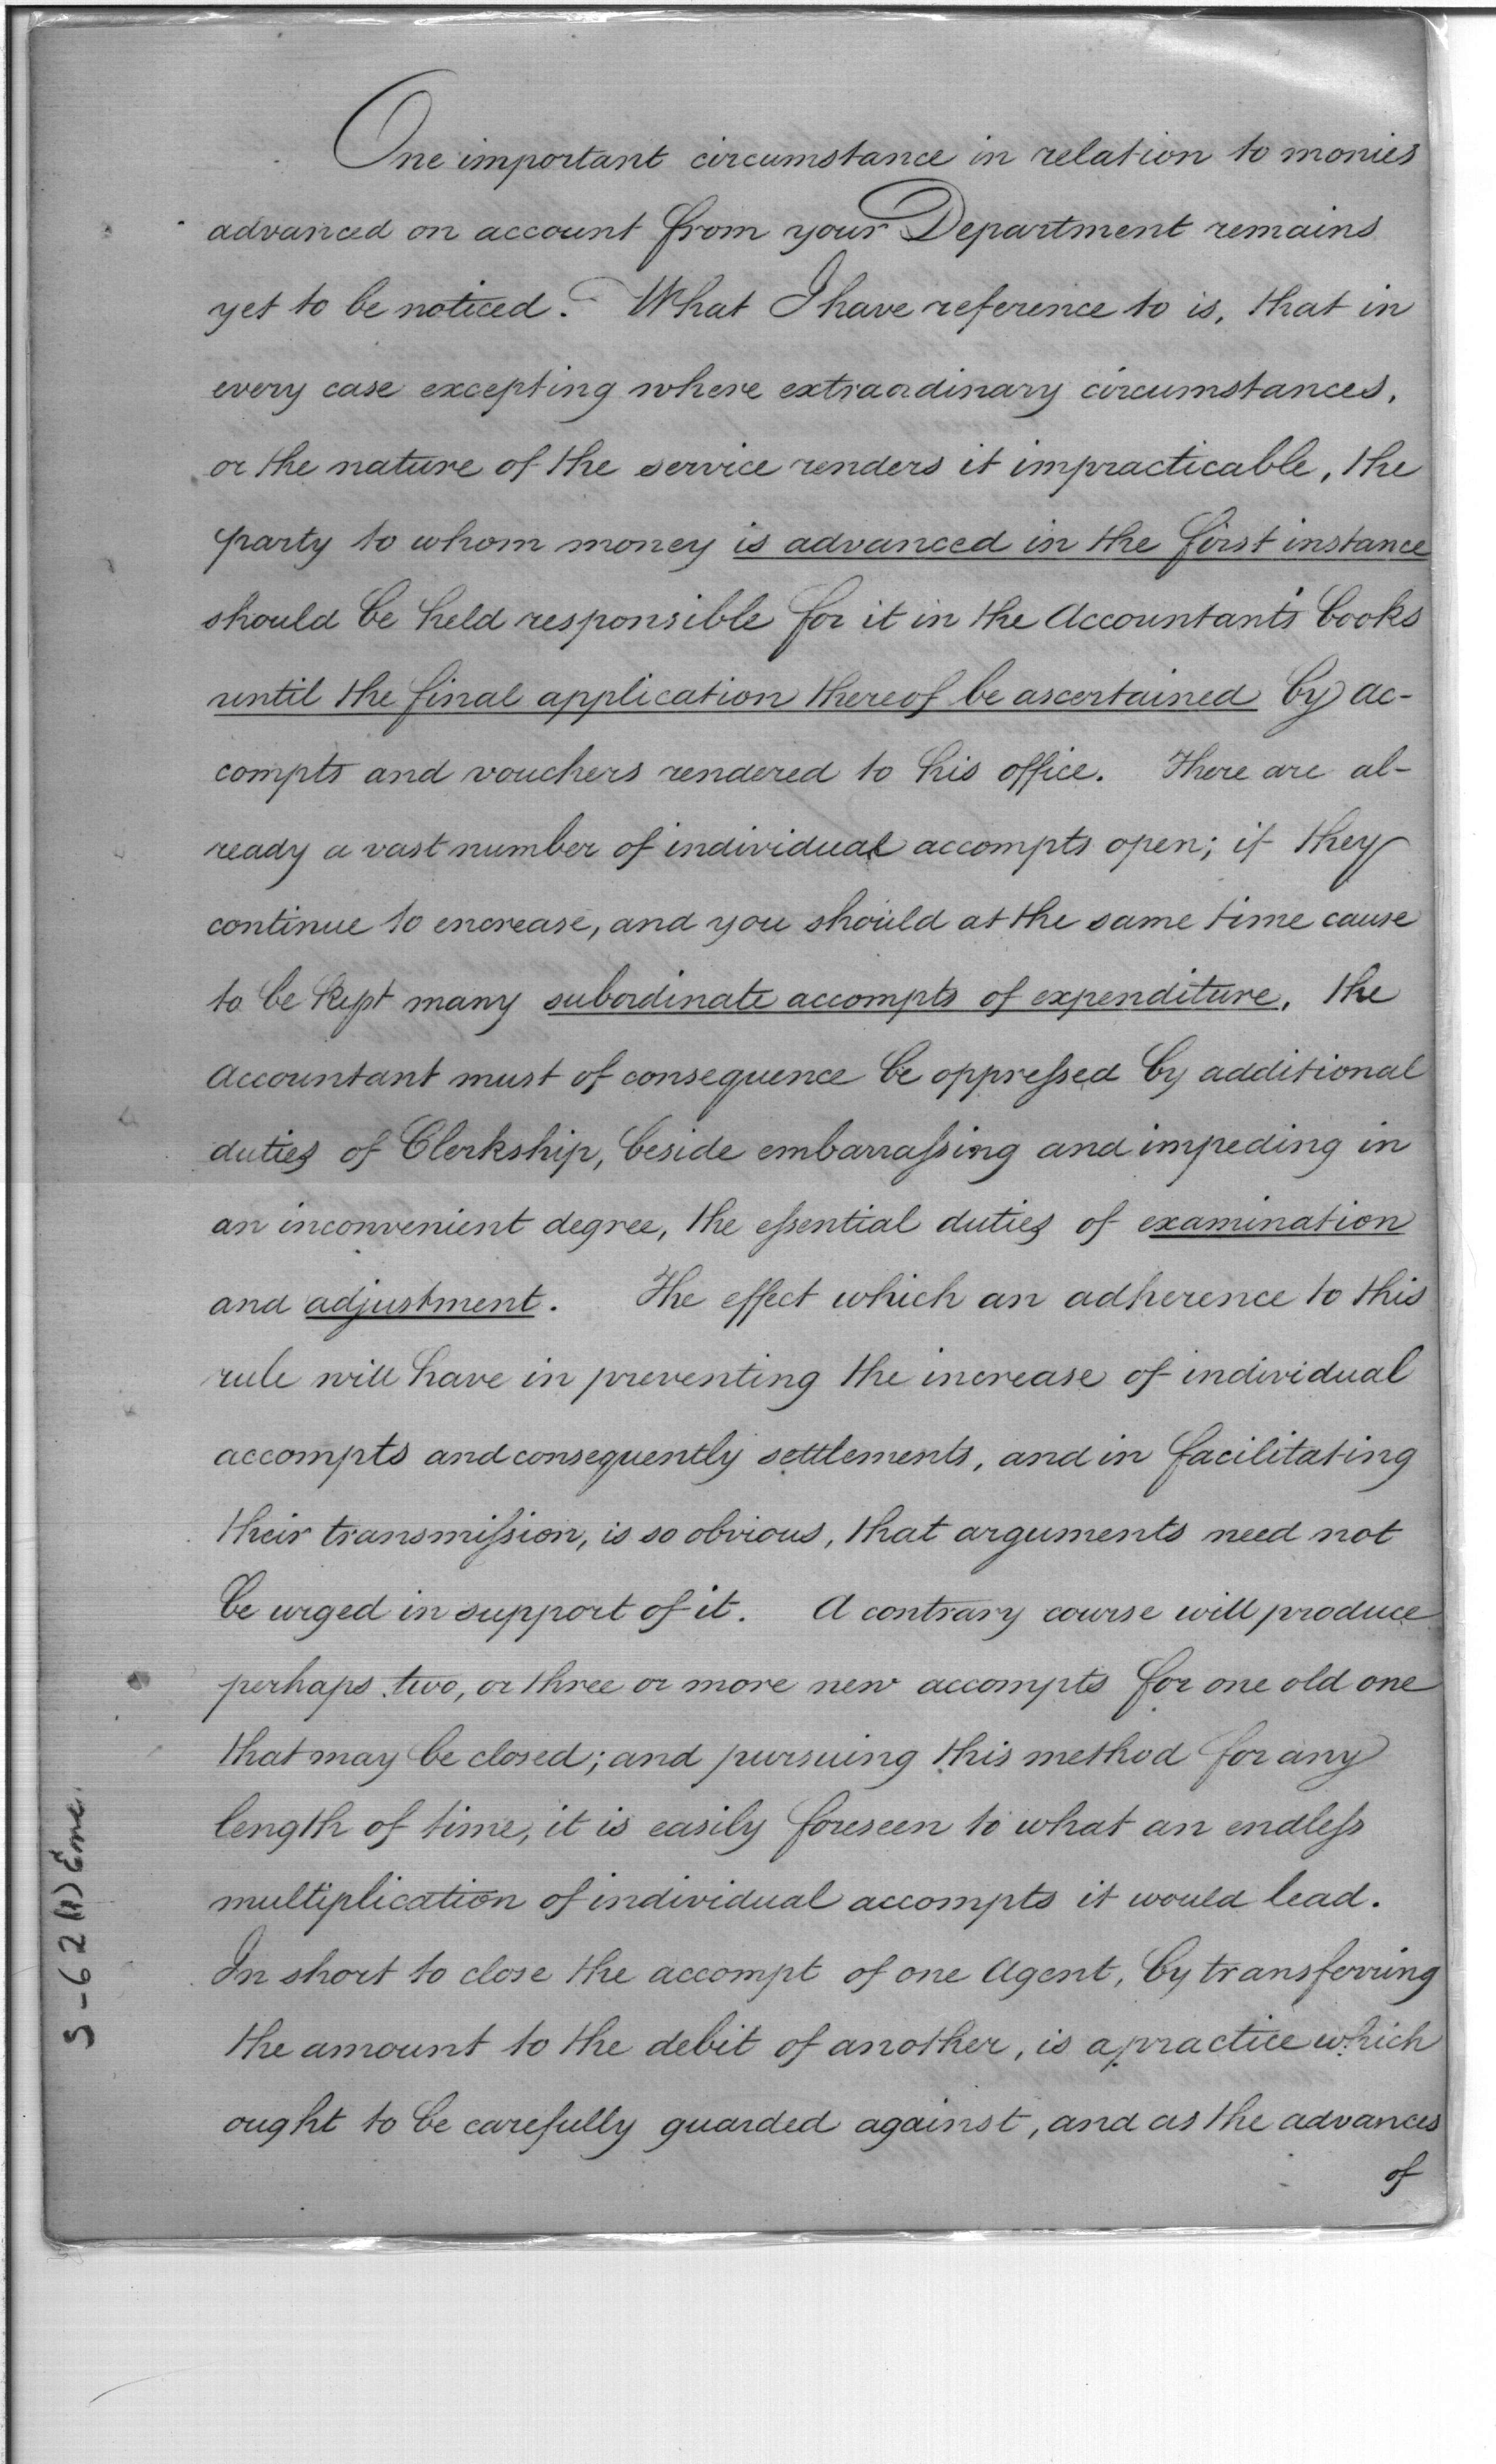 One important circumstance in relation to monies
advanced on account from your Department remains
yet to be noticed. What I have reference to is, that in
every case excepting where extraordinary circumstances,
or the nature of the service renders it impracticable, the
party to whom money is advanced in the first instance
should be held responsible for it in the Accountant's books
until the final application thereof be ascertained by ac-
compts and vouchers rendered to his office. There are al-
ready a vast number of individual accompts open; if they
continue to encrease, and you should at the same time cause
to be kept many subordinate accompts of expenditure, the
Accountant must of consequence be oppressed by additional
duties of Clerkship, beside embarrassing and impeding in
an inconvenient degree, the essential duties of examination
and adjustment. The effect which an adherence to this
rule will have in preventing the increase of individual
accompts and consequently settlements, and in facilitating
their transmission, is so obvious, that arguments need not
be urged in support of it. A contrary course will produce
perhaps two, or three or more new accompts for one old one
that may be closed; and pursuing this method for any
length of time, it is easily foreseen to what an endless
multiplication of individual accompts it would lead.
In short to close the accompt of one Agent, by transferring
the amount to the debit of another, is a practice which
ought to be carefully guarded against, and as the advances
of
5-62 (1) Enc.